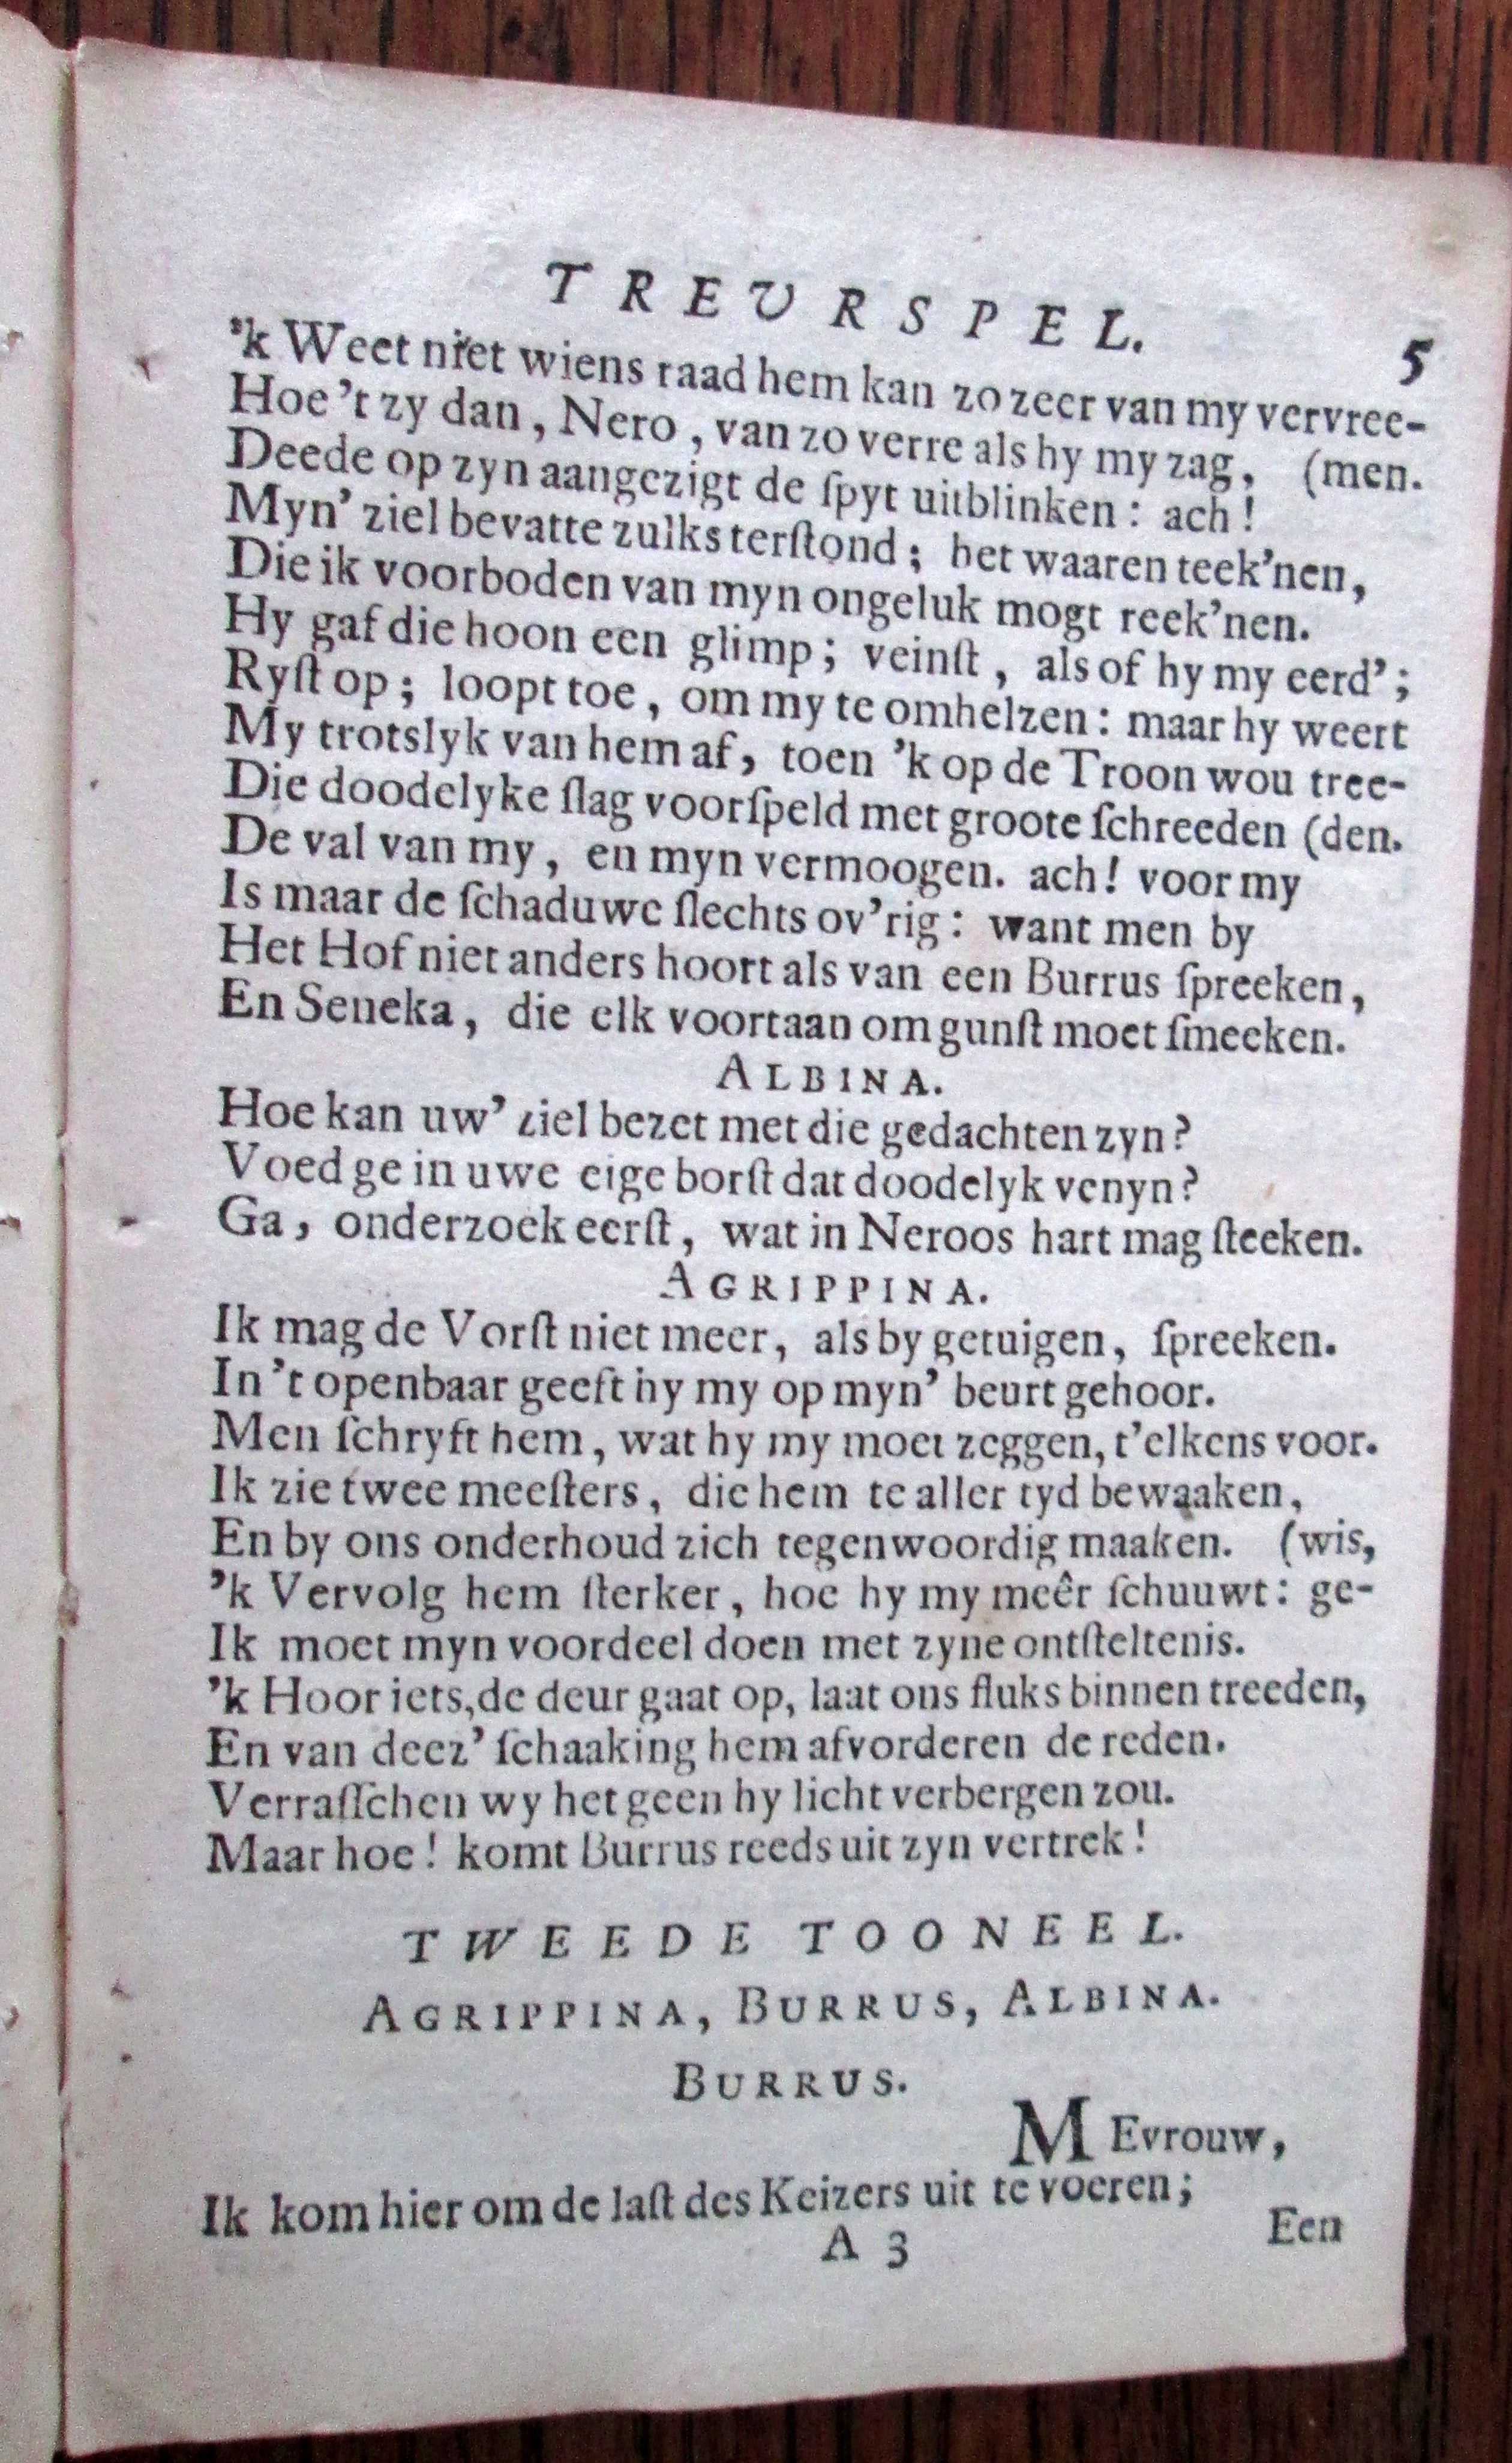 TREURSPEL. 5
’k Weet niet wiens raad hem kan zo zeer van my vervree-
Hoe ’t zy dan, Nero, van zo verre als hy my zag, (men.
Deede op zyn aangezigt de ſpyt uitblinken: ach!
Myn’ ziel bevatte zulks terſtond; het waaren teek’nen,
Die ik voorboden van myn ongeluk mogt reek’nen.
Hy gaf die hoon een glimp; veinſt, als of hy my eerd’;
Ryſt op; loopt toe, om my te omhelzen: maar hy weert
My trotslyk van hem af, toen ’k op de Troon wou tree-
Die doodelyke ſlag voorſpeld met groote ſchreeden (den.
De val van my, en myn vermoogen. ach! voor my
Is maar de ſchaduwe ſlechts ov’rig: want men by
Het Hof niet anders hoort als van een Burrus ſpreeken,
En Seneka, die elk voortaan om gunſt moet ſmeeken.
ALBINA.
Hoe kan uw’ ziel bezet met die gedachten zyn?
Voed ge in uwe eige borſt dat doodelyk venyn?
Ga, onderzoek eerſt, wat in Neroos hart mag ſteeken.
AGRIPPINA.
Ik mag de Vorſt niet meer, als by getuigen, ſpreeken.
In ’t openbaar geeft hy my op myn’ beurt gehoor.
Men ſchryft hem, wat hy my moet zeggen, t’elkens voor.
Ik zie twee meeſters, die hem te aller tyd bewaaken,
En by ons onderhoud zich tegenwoordig maaken. (wis,
’k Vervolg hem ſterker, hoe hy my meêr ſchuuwt: ge-
Ik moet myn voordeel doen met zyne ontſteltenis.
’k Hoor iets, de deur gaat op, laat ons fluks binnen treeden,
En van deez’ ſchaaking hem afvorderen de reden.
Verraſſchen wy het geen hy licht verbergen zou.
Maar hoe! komt Burrus reeds uit zyn vertrek!
TWEEDE TOONEEL.
AGRIPPINA, BURRUS, ALBINA.
BURRUS.
MEvrouw,
Ik kom hier om de laſt des Keizers uit te voeren;
A 3 Een